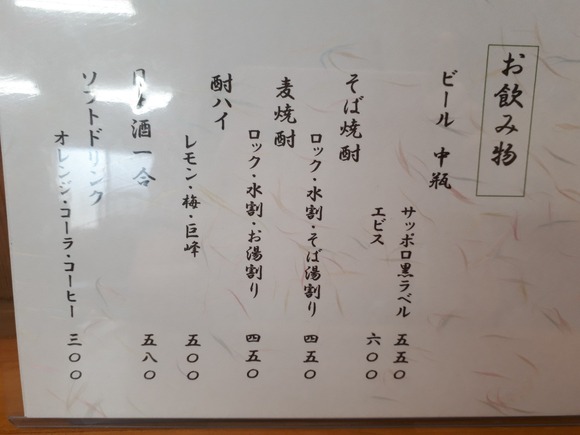 お飲み物
ビール 中瓶
サッポロ黒ラベル 五五〇
エビス 六〇〇
そば焼酎
ロック・水割・そば湯割り 四五〇
麦焼酎
ロック・水割・お湯割り 四五〇
酎ハイ
レモン・梅・巨峰 五〇〇
日本酒一合 五八〇
ソフトドリンク
オレンジ・コーラ・コーヒー 三〇〇